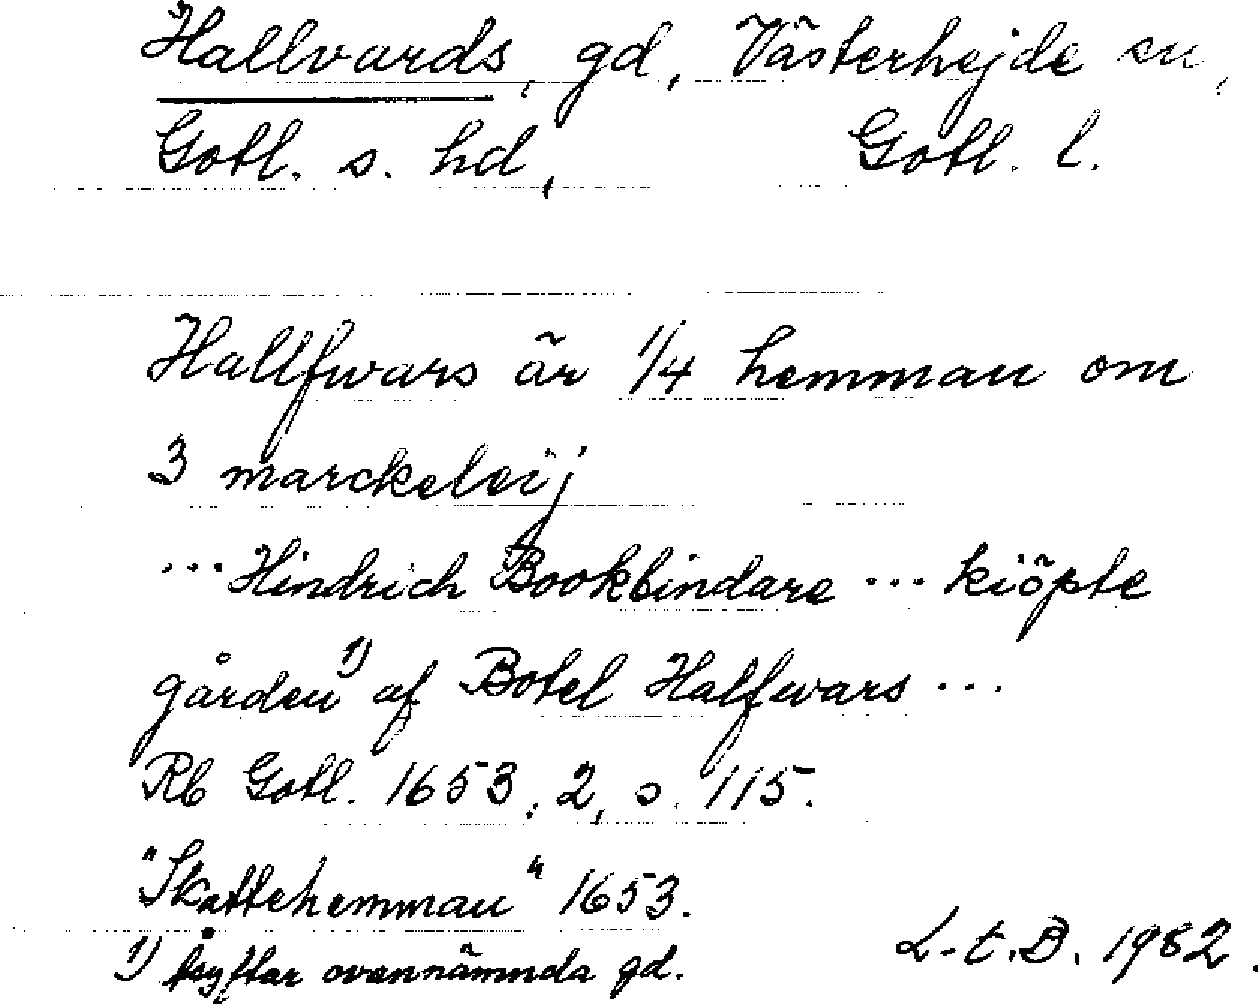 Hallvards, gd, Västerhejde sn,
Gotl. s. hd, Gotl. l.
Hallfwars är 1/4 hemman om
3 marckeleij
... Hindrich Bookbindare ... kiöpte
gården 1) af Botel Halfwars ...
Rb Gotl. 1653, 2, s. 115.
"Skattehemman" 1653.
1) åsyftar ovannämnda gd.
L-t. B. 1982.